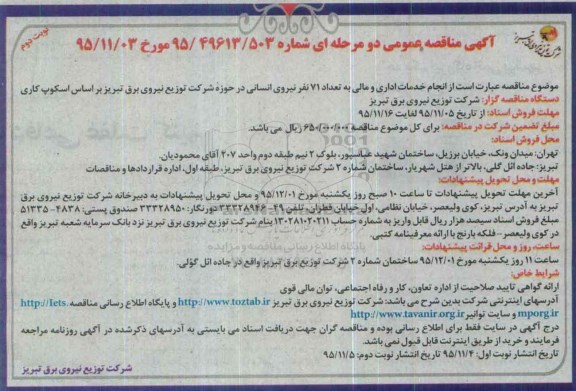 نوبت دوم
آگهی مناقصه عمومی دو مرحله ای شماره ۹۵/۴۹۶۱۳/۵۰۳ مورخ ۹۵/۱۱/۰۳
موضوع مناقصه عبارت است از انجام خدمات اداری و مالی به تعداد ۷۱ نفر نیروی انسانی در حوزه شرکت توزیع نیروی برق تبریز بر اساس اسکوپ کاری
دستگاه مناقصه گزار: شرکت توزیع نیروی برق تبریز
مهلت فروش اسناد: از تاریخ ۹۵/۱۱/۰۵ لغایت ۹۵/۱۱/۱۶
مبلغ تضمین شرکت در مناقصه: برای کل موضوع مناقصه ۶۵۰/۰۰۰/۰۰۰ ریال می باشد.
محل فروش اسناد:
تهران: میدان ونک، خیابان برزیل، ساختمان شهید عباسپور، بلوک ۲ نیم طبقه دوم واحد ۲۰۷ آقای محمودیان.
تبریز: جاده ائل گلی، بالاتر از هتل شهریار، ساختمان شماره ۲ شرکت توزیع نیروی برق تبریز، طبقه اول، اداره قراردادها و مناقصات
مهلت و محل تحویل پیشنهادات:
آخرین مهلت تحویل پیشنهادات تا ساعت ۱۰ صبح روز یکشنبه مورخ ۹۵/۱۲/۰۱ و محل تحویل پیشنهادات به دبیرخانه شرکت توزیع نیروی برق
تبریز به آدرس تبریز، کوی ولیعصر، خیابان نظامی، اول خیابان قطران، تلفن: ۴۹-۳۳۳۲۸۹۴۶ دورنگار: ۳۳۳۲۸۹۵۰ صندوق پستی: ۴۸۳۸-۵۱۳۳۵
مبلغ فروش اسناد سیصد هزار ریال قابل واریز به شماره حساب بنام شرکت توزیع نیروی برق تبریز نزد بانک سرمایه شعبه تبریز واقع
در کوی ولیعصر- فلکه بارنج با ارائه معرفینامه کتبی.
ساعت، روز و محل قرائت پیشنهادات:
ساعت ۱۱ روز یکشنبه مورخ ۹۵/۱۲/۰۱ ساختمان شماره ۲ شرکت توزیع برق تبریز واقع در جاده ائل گؤلی.
شرایط خاص:
ارائه گواهی تایید صلاحیت از اداره تعاون، کار و رفاه اجتماعی، توان مالی قوی
آدرسهای اینترنتی شرکت بدین شرح می باشد: شرکت توزیع نیروی برق تبریز http://www.toztab.ir و پایگاه اطلاع رسانی مناقصه http://Iets.
mporg.ir و سایت توانیر http://www.tavanir.org.ir
درج آگهی در سایت فقط برای اطلاع رسانی بوده و مناقصه گران جهت دریافت اسناد می بایستی به آدرسهای ذکرشده در آگهی روزنامه مراجعه
فرمایند و خرید از طریق اینترنت قابل قبول نمی باشد.
تاریخ انتشار نوبت اول: ۹۵/۱۱/۴ تاریخ انتشار نوبت دوم: ۹۵/۱۱/۵
شرکت توزیع نیروی برق تبریز